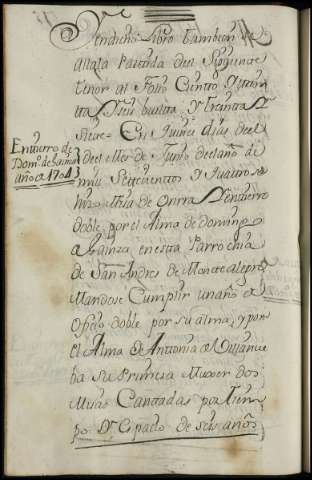 En dicho Libro tambien se
alla la Partida del siguiente
tenor al Folio Ciento y trein
ta y seis buelta, y treinta y
siete = En quince dias del
Entierro de
Dom.º de
año d 1704
del Mes de Junio del año de
mill Setecientos y quatro se
hizo Missa de Onrra y entierro
doble por el Alma de domingo
de en esta Parrochia
de San Andres de Montealegre
Mandose Cumplir un año de
Oficio doble por su alma, y por
el Alma de Antonia de
ba su Primera Muxer dos
Misas Cantadas por tiem
po y espacio de seis años